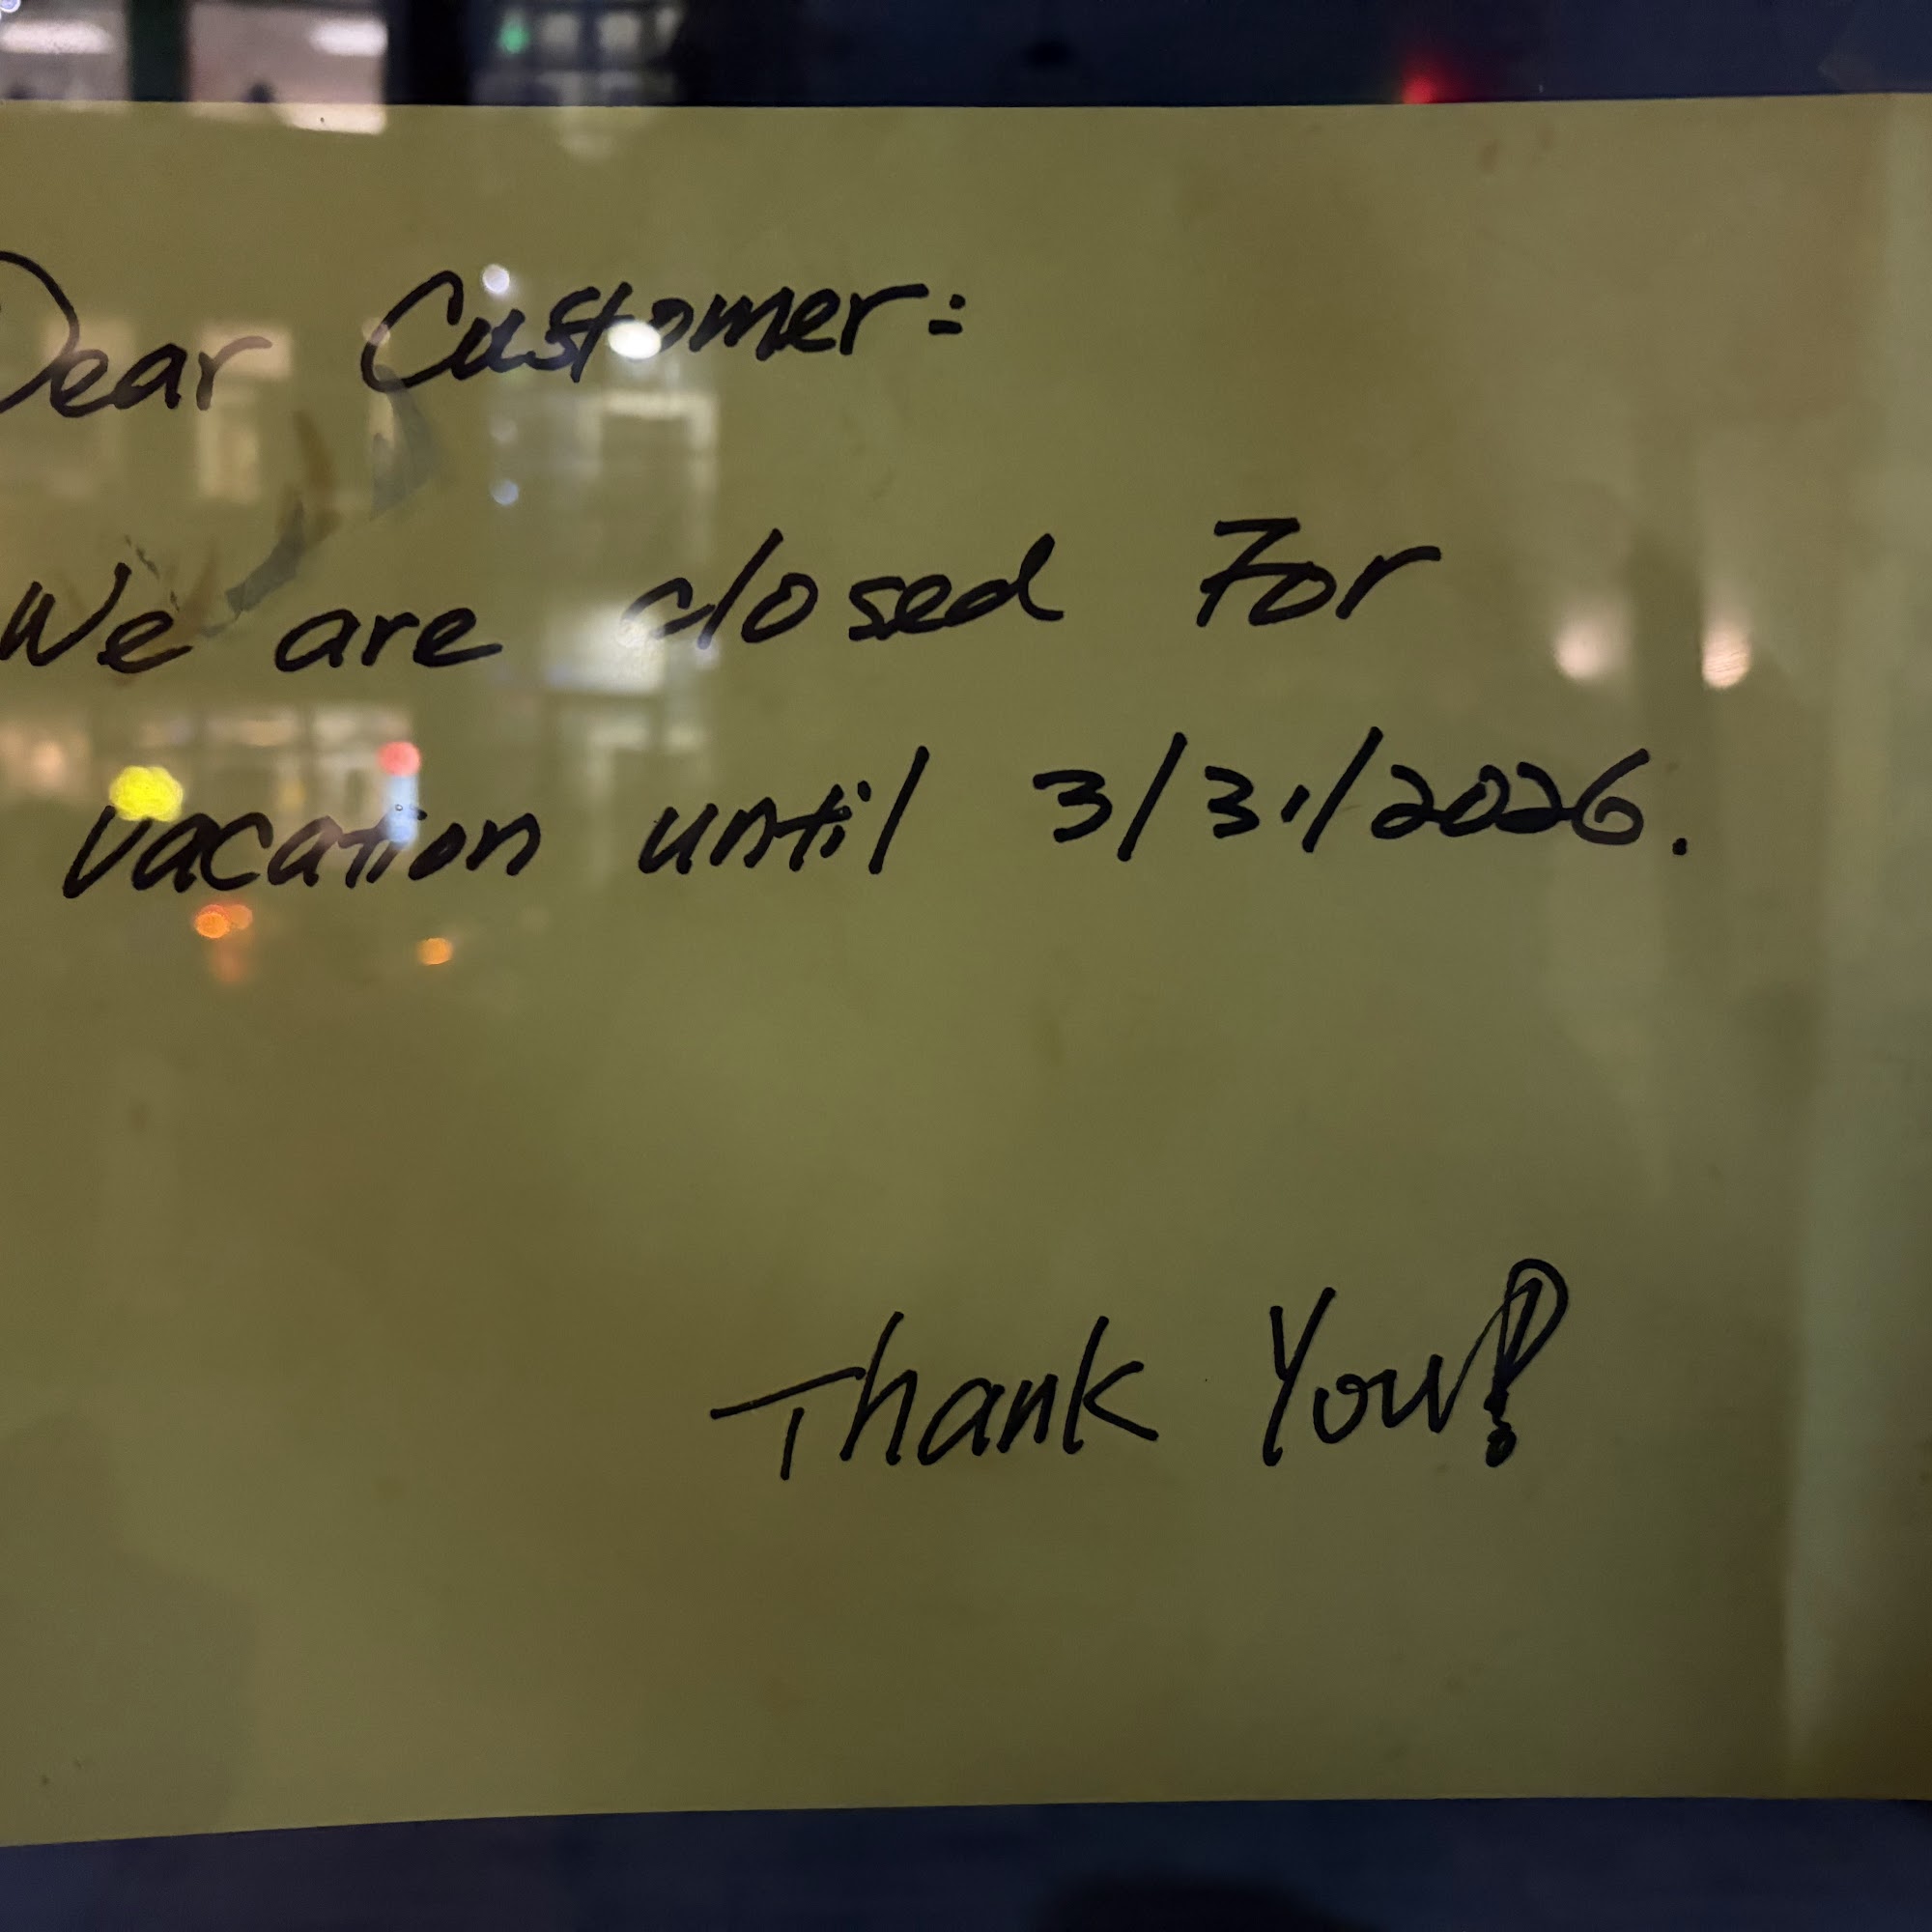 Dear Customer:
We are closed For
vacation until 3/31/2026.
Thank You!